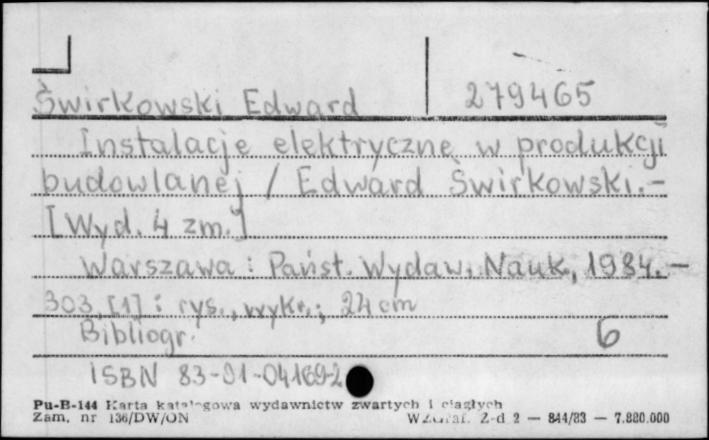 Świrkowski Edward 279465
Instalacje elektryczne w produkcji
budowlanej / Edward Świrkowski.-
[Wyd. 4 zm.]
Warszawa : Państ. Wydaw. Nauk, 1984. -
303, [1] : rys., wykr.; 24 cm
Bibliogr. 6
ISBN 83-01-04169-2
Pu-B-144 Karta katalogowa wydawnictw zwartych i ciągłych
Zam. nr 136/DW/ON WZGraf. Z-d 2 — 844/83 — 7.880.000